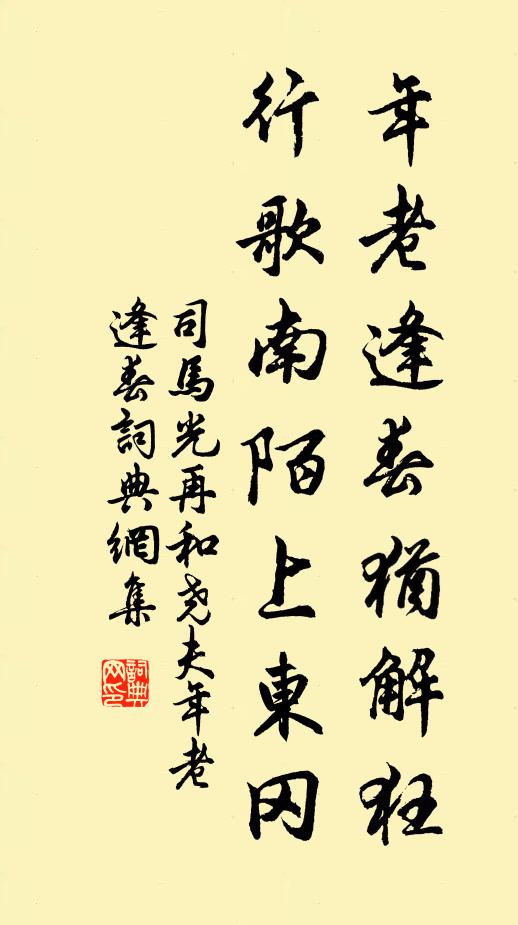 年老逢春猶解狂
行歌南陌上東冈
司馬光再和尧夫年老
逢春詞典網集
詞典网印